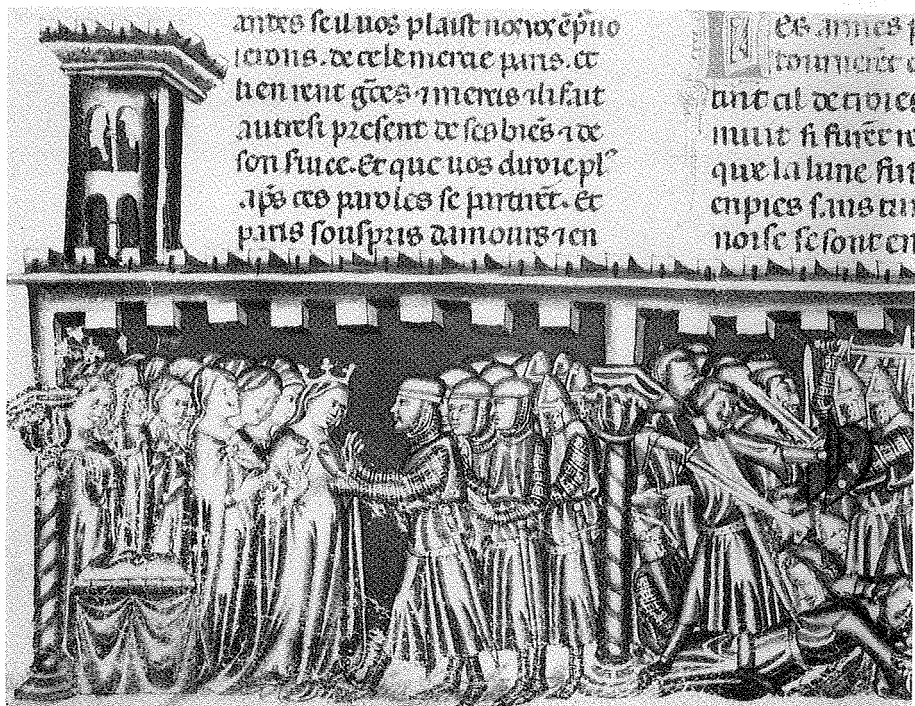 antes seil uos plaist
de cele mercie paris. et
li en rent gr̄es ⁊ mercis ⁊ li fait
autresi present de ses biēs ⁊ de
son Et que uos diroie plꝰ
aps̄ ces paroles se partirēt. Et
paris souspris damours ⁊ en
Es armes
tournerēt
tant cil de troies
nuit si furēt
que la lune fu
enpies sans
noise se sont en